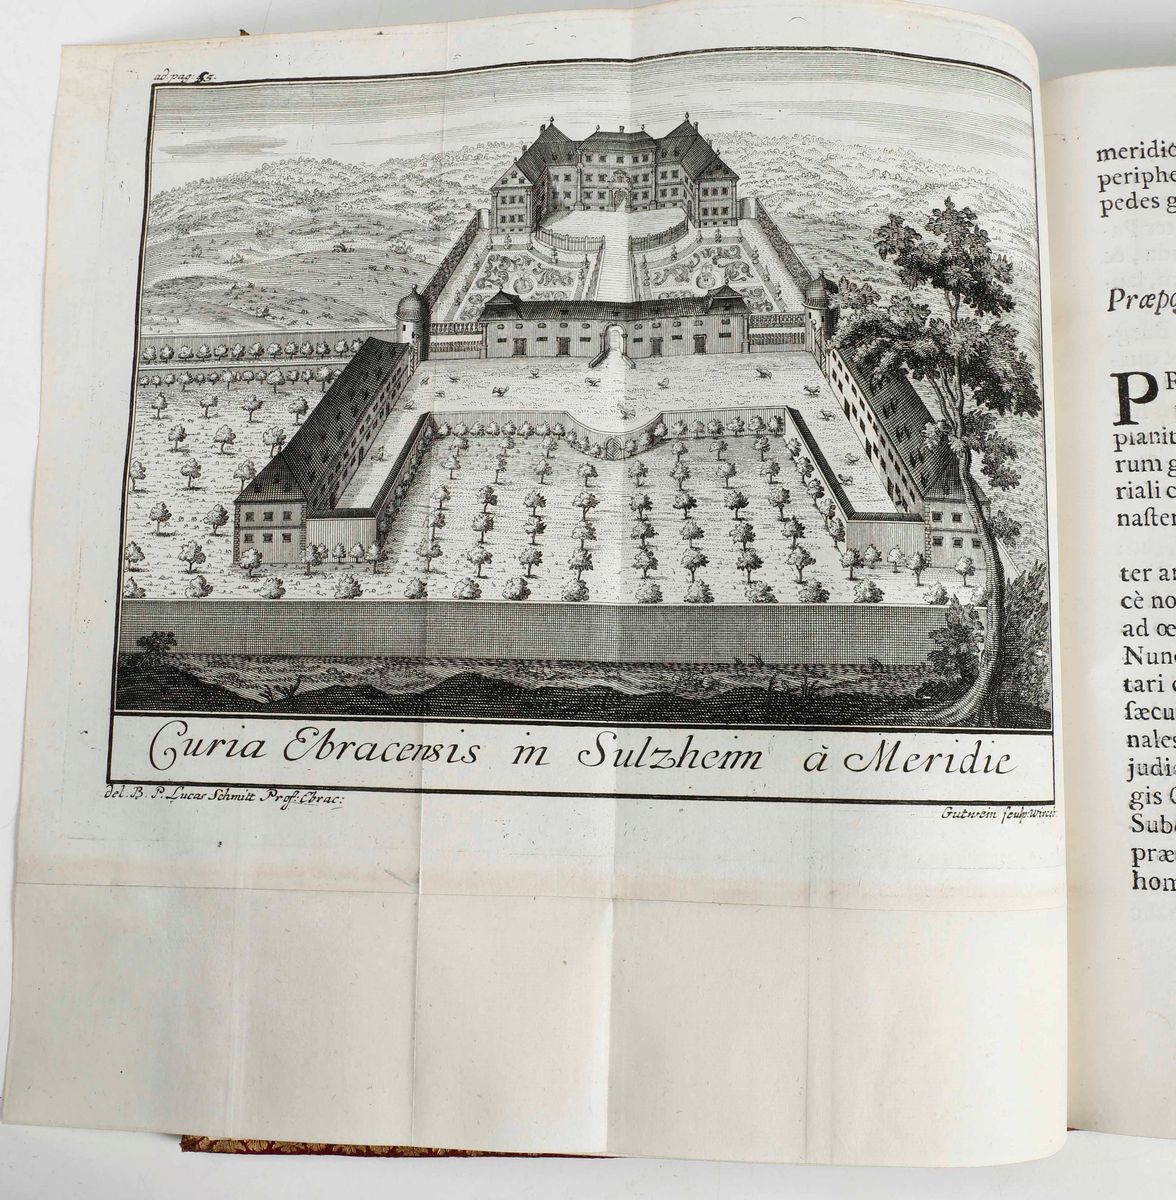 ad pag: 53.
Curia Ebracensis in Sulzheim à Meridie
del. B. P. Lucas Schmitt Prof: Ebrac:
Gutwein sculp: Wirceb.
meridio
periphe
pedes g
Præpo
P
pianit
rum g
riali c
naſter
ter ar
cè no
ad œ
Nunc
tari c
ſæcu
nales
judi
gis C
Sub
præ
hom